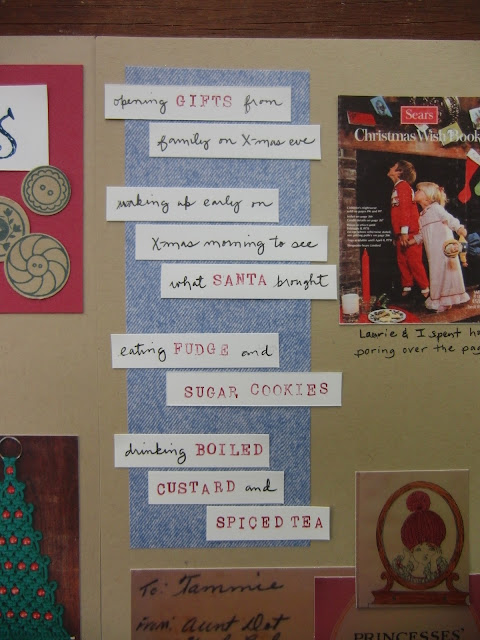 S
opening GIFTS from
family on X-mas eve
waking up early on
X-mas morning to see
what SANTA brought
eating FUDGE and
SUGAR COOKIES
drinking BOILED
CUSTARD and
SPICED TEA
Sears
Christmas Wish Book
Laurie & I spent
poring over the
To: Tammie
Aunt Dot
PRINCESSES'